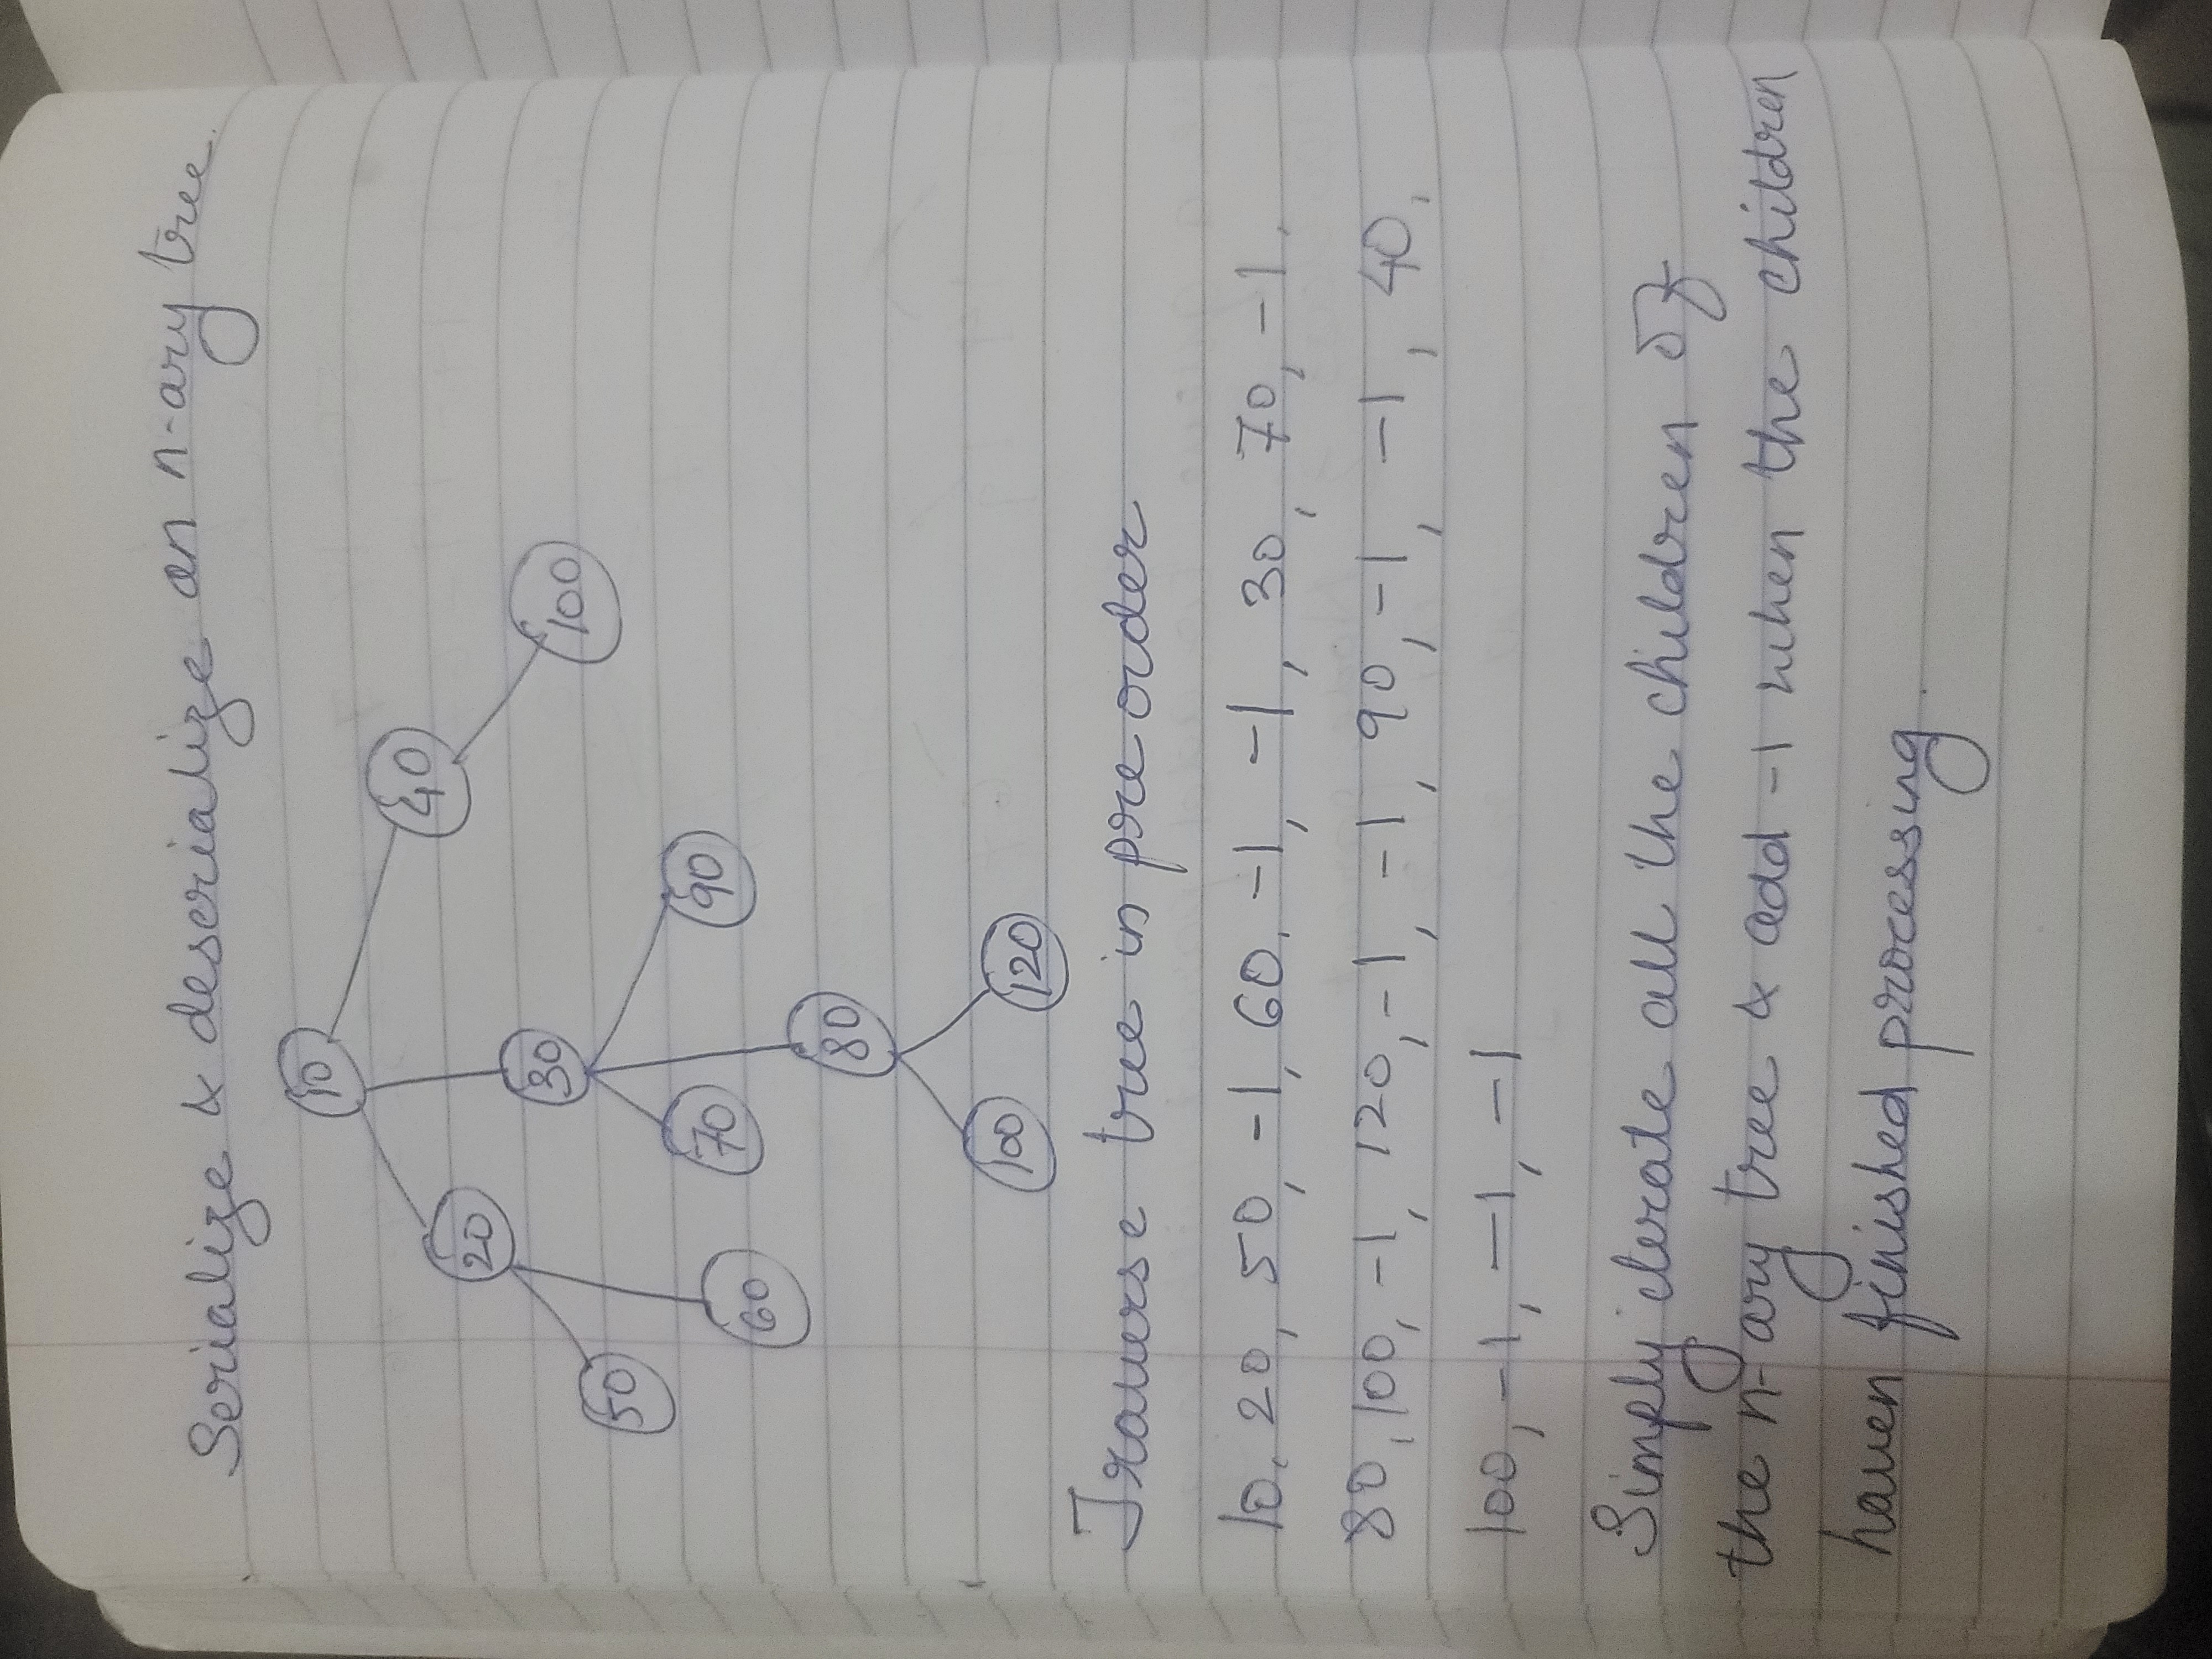 Serialize & deserialize an n-ary tree.
10
40
20
30
100
50
70
90
60
80
100
120
Traverse tree in pre order
10, 20, 50, -1, 60, -1, -1, 30, 70, -1,
80, 100, -1, 120, -1, -1, 90, -1, -1, 40,
100, -1, -1, -1
Simply iterate all the children of
the n-ary tree & add -1 when the children
haven finished processing.